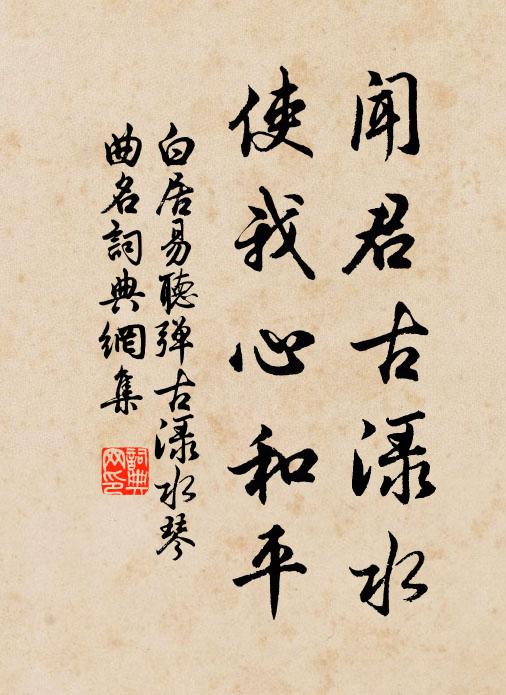 闻君古渌水
使我心和平
白居易聽弹古渌水琴
曲名詞典網集
詞典
网印